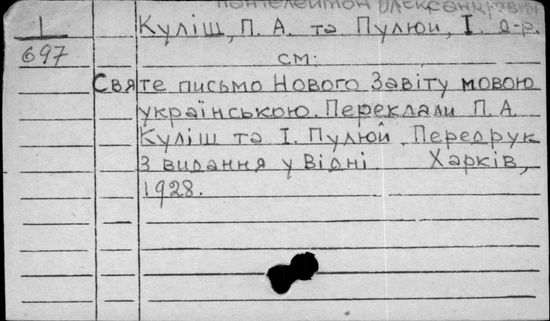 Пантелеймон Олександрович
1 Куліш, П. А. та Пулюй, І. д-р.
697 см:
Святе письмо Нового Завіту мовою
українською. Переклали П. А.
Куліш та І. Пулюй. Передрук
з видання у Відні Харків,
1928.